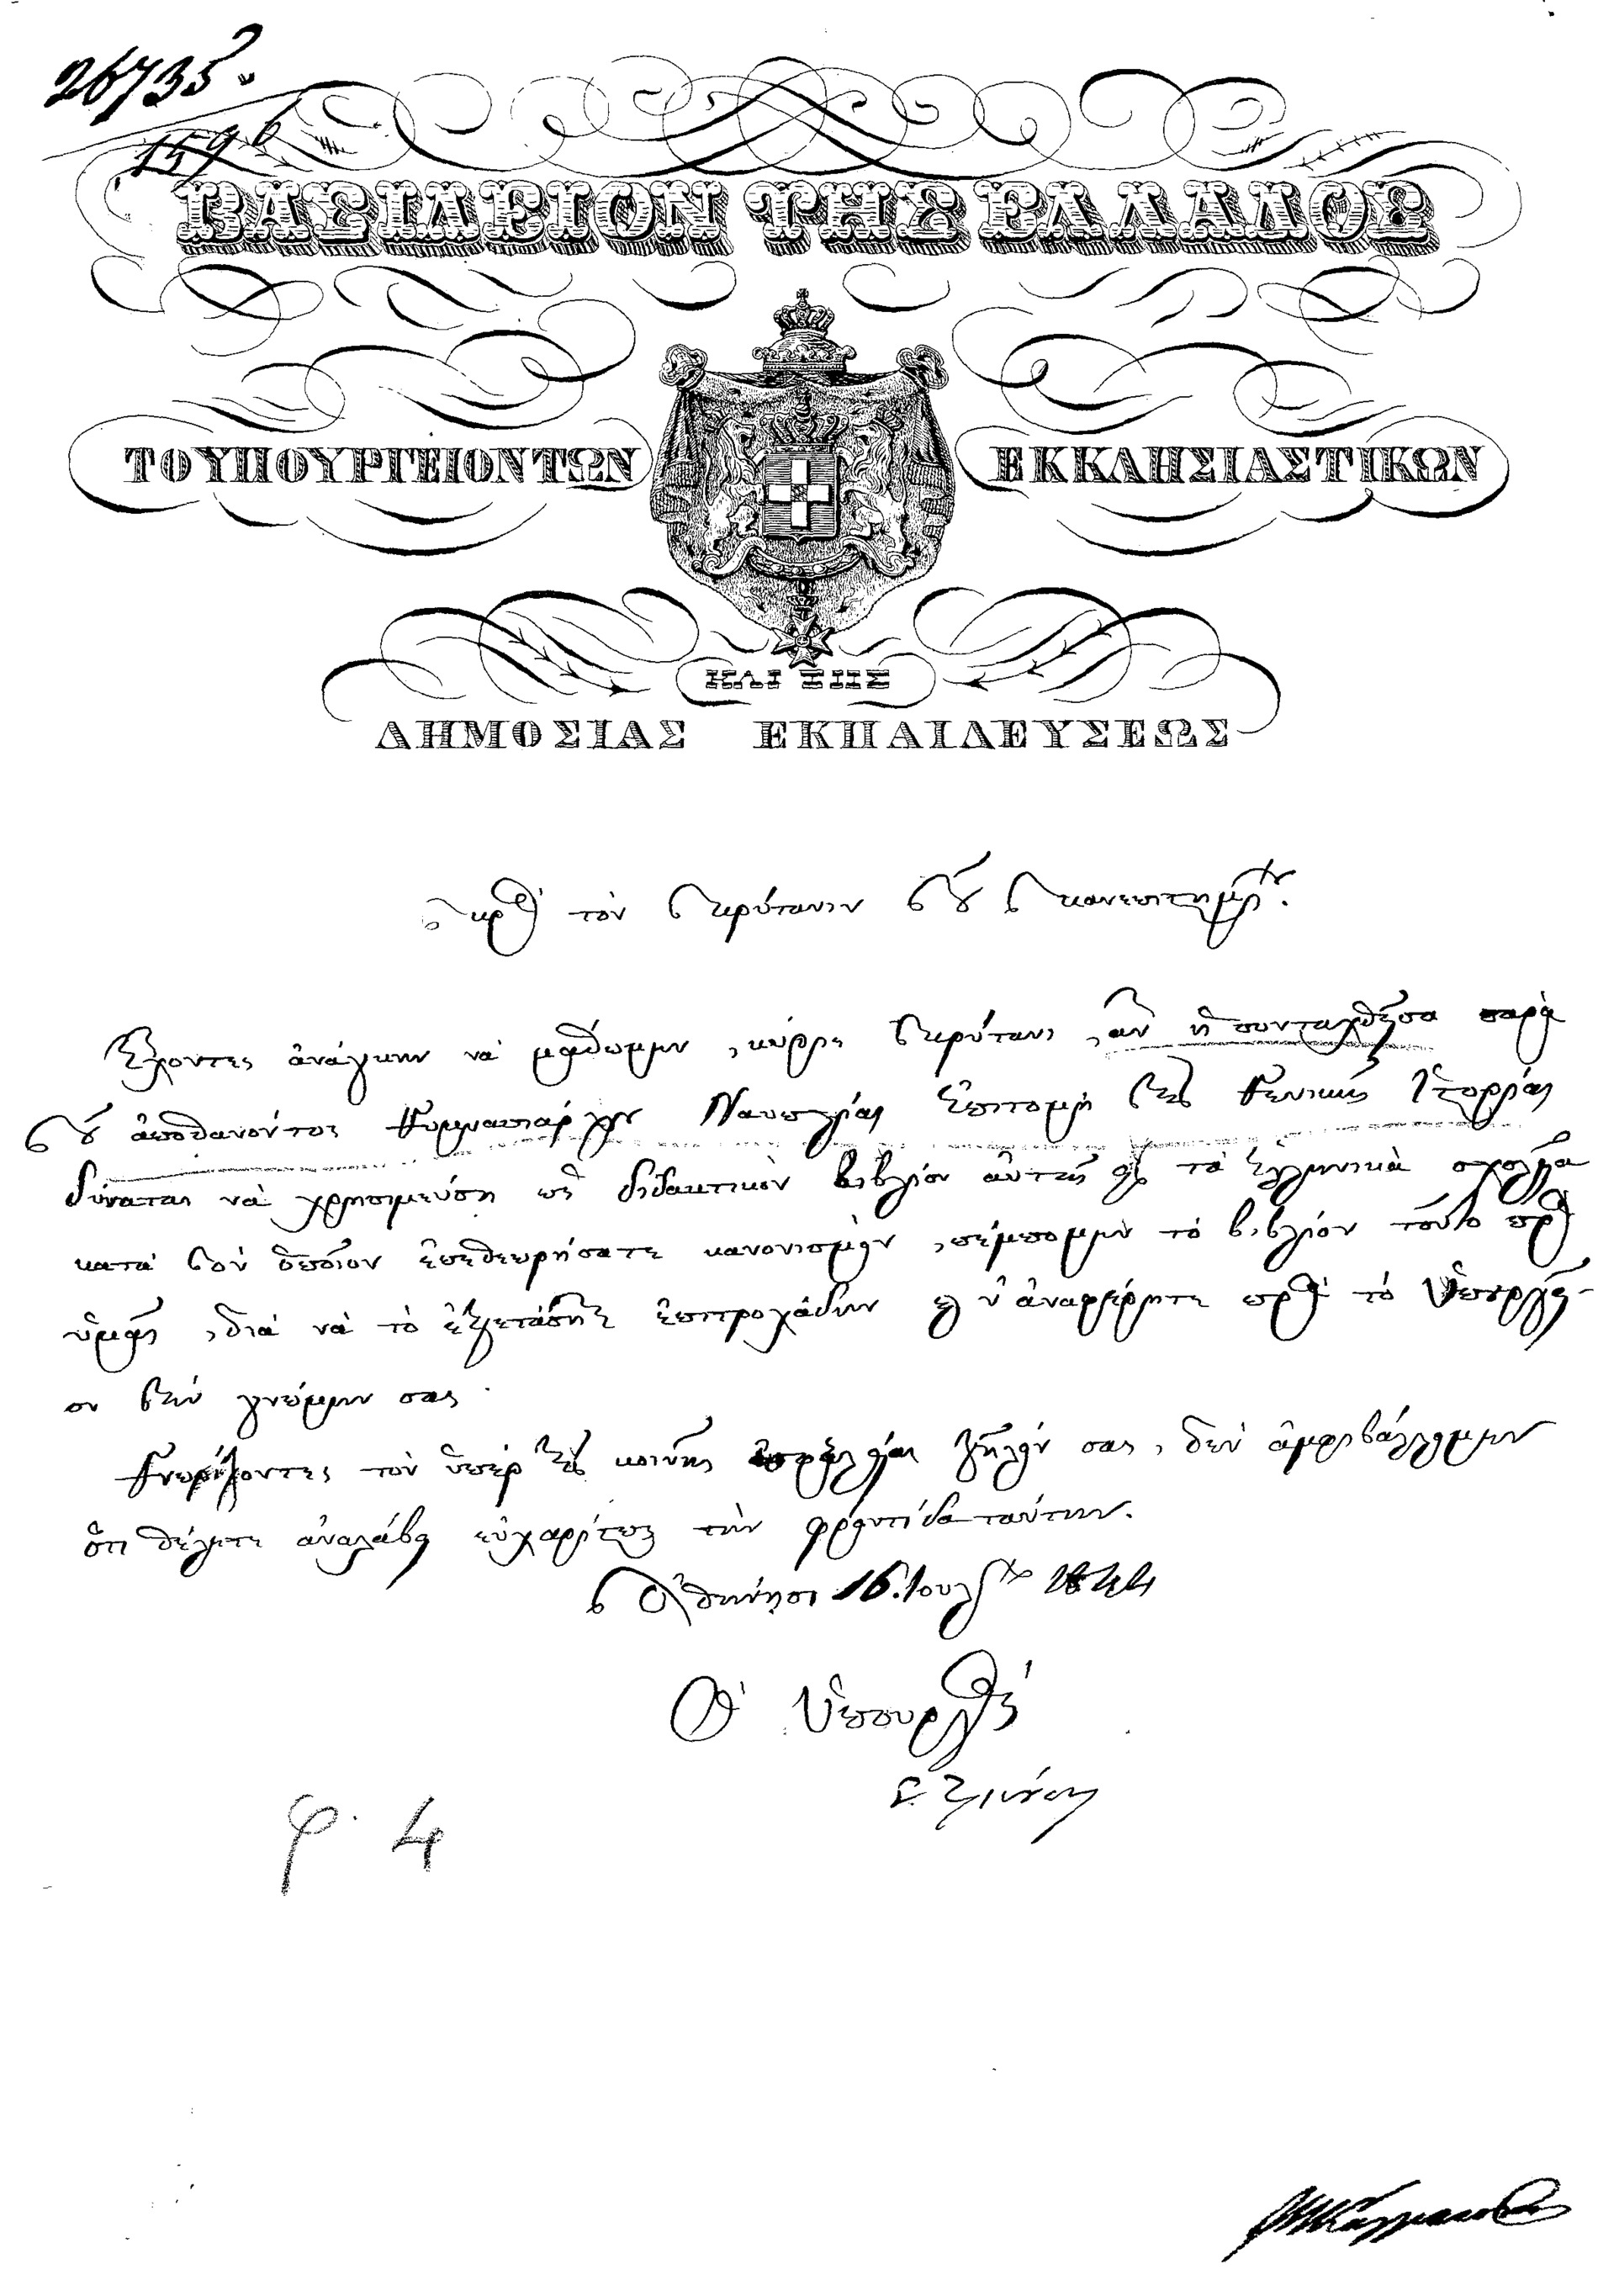 26735.
1596
ΒΑΣΙΛΕΙΟΝ ΤΗΣ ΕΛΛΑΔΟΣ
ΤΟ ΥΠΟΥΡΓΕΙΟΝ ΤΩΝ ΕΚΚΛΗΣΙΑΣΤΙΚΩΝ
ΚΑΙ ΤΗΣ
ΔΗΜΟΣΙΑΣ ΕΚΠΑΙΔΕΥΣΕΩΣ
πρὸς τὸν πρύτανιν τοῦ πανεπιστημίου.
Ἔχοντες ἀνάγκην νὰ μάθωμεν, κύριε πρύτανι, ἂν ἡ συνταχθεῖσα παρὰ
τοῦ ἀποθανόντος Γυμνασιάρχου Ναυπλίας Ἐπιτομὴ τῆς Γενικῆς Ἱστορίας
δύναται νὰ χρησιμεύσῃ ὡς διδακτικὸν βιβλίον αὐτῆς εἰς τὰ Ἑλληνικὰ σχολεῖα
κατὰ τὸν ὁποῖον ἐπεθεωρήσατε κανονισμόν, πέμπομεν τὸ βιβλίον τοῦτο πρὸς
ὑμᾶς, διὰ νὰ τὸ ἐξετάσητε ἐπιτροχάδην καὶ ν' ἀναφέρητε πρὸς τὸ Ὑπουργεῖ-
ον τὴν γνώμην σας.
Γνωρίζοντες τὸν ὑπὲρ τῆς κοινῆς ὠφελείας ζῆλόν σας, δὲν ἀμφιβάλλομεν
ὅτι θέλετε ἀναλάβει εὐχαρίστως τὴν φροντίδα ταύτην.
Ἀθήνησι 16. Ἰουλίου 1844
Ὁ Ὑπουργὸς
φ. 4